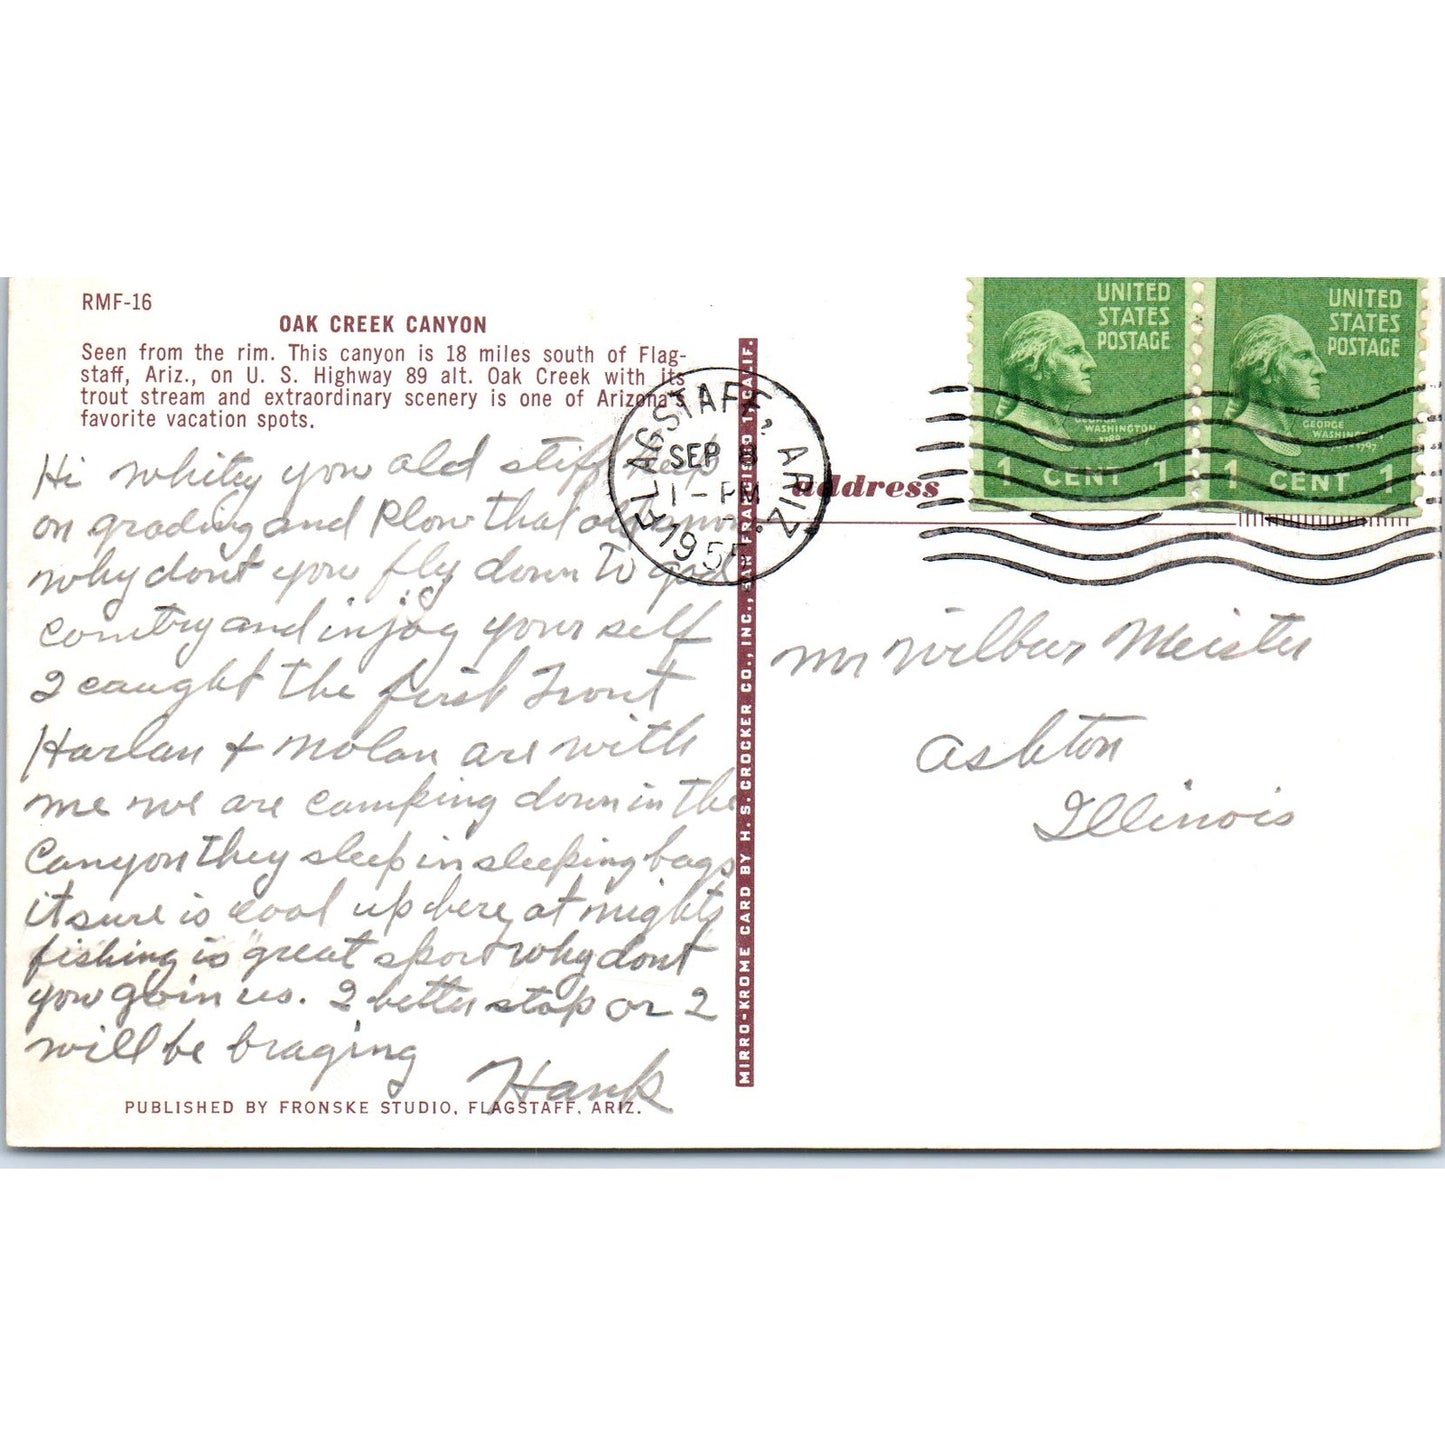 RMF-16
OAK CREEK CANYON
Seen from the rim. This canyon is 18 miles south of Flag-
staff, Ariz., on U. S. Highway 89 alt. Oak Creek with its
trout stream and extraordinary scenery is one of Arizona's
favorite vacation spots.
Hi Whitey you old stiff keep
on grading and Plow that
why dont you fly down to god
country and injoy your self
I caught the first Trout
Harlan + Nolan are with
me we are camping down in the
Canyon they sleep in sleeping bags
it sure is cool up here at nights
fishing is great sport why dont
you goin us. I better stop or I
will be braging
Hank
PUBLISHED BY FRONSKE STUDIO, FLAGSTAFF, ARIZ.
MIRRO-KROME CARD BY H. S. CROCKER CO., INC., SAN FRANCISCO 1, CALIF.
FLAGSTAFF, ARIZ.
SEP 8
1-PM
1955
address
UNITED
STATES
POSTAGE
GEORGE
WASHINGTON
1789-1797
1 CENT 1
UNITED
STATES
POSTAGE
GEORGE
WASHINGTON
1789-1797
1 CENT 1
Mr Wilbur Meister
Ashton
Illinois